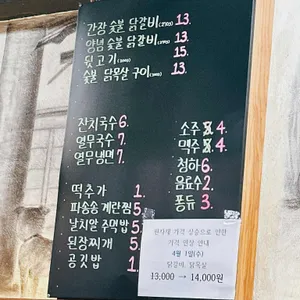 간장 숯불 닭갈비 13.
양념 숯불 닭갈비 13.
뒷고기 15.
숯불 닭목살 구이 13.
잔치국수 6.
열무국수 7.
열무냉면 7.
떡추가 1.
파송송 계란찜 5.
날치알 주먹밥 5.
된장찌개 5.
공깃밥 1.
소주 4.
맥주 4.
청하 6.
음료수 2.
퐁듀 3.
원자재 가격 상승으로 인한
가격 인상 안내
4월 1일(수)
닭갈비, 닭목살
13,000 → 14,000원